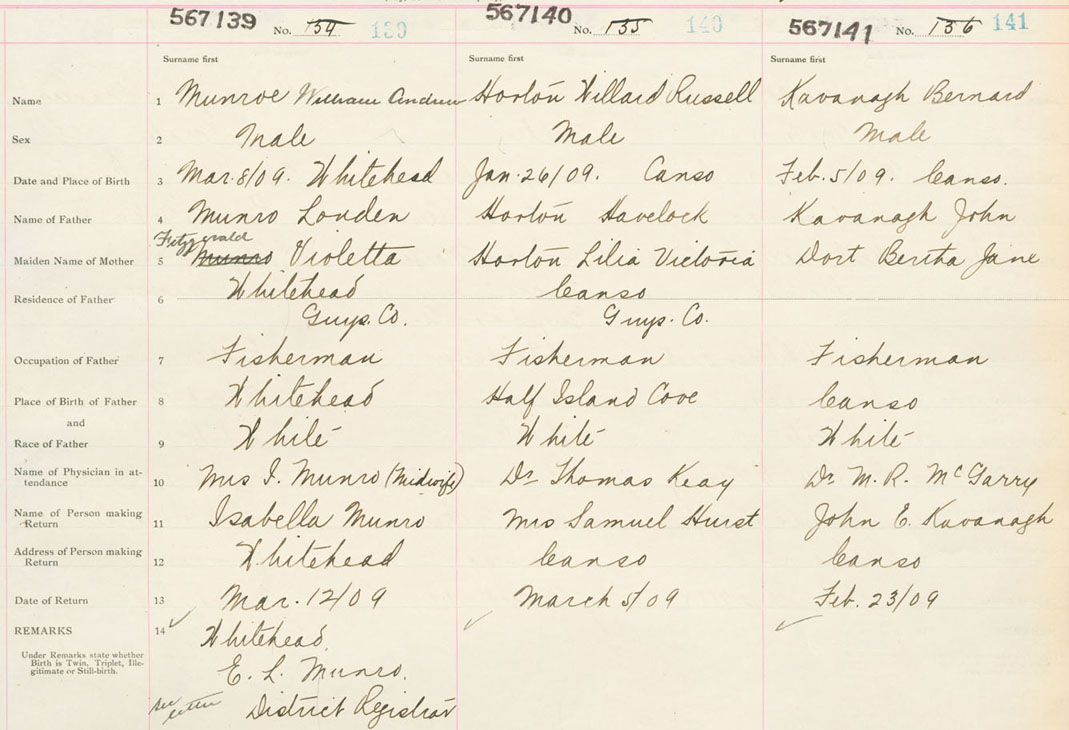 567139 No. 154 139 567140 No. 155 140 567141 No. 156 141
Surname first Surname first Surname first
Name 1 Munroe William Andrew Horton Willard Russell Kavanagh Bernard
Sex 2 Male Male Male
Date and Place of Birth 3 Mar. 8/09. Whitehead Jan. 26/09. Canso Feb. 5/09. Canso.
Name of Father 4 Munro Louden Horton Havelock Kavanagh John
Fitzgerald
Maiden Name of Mother 5 Munro Violetta Horton Lilia Victoria Dort Bertha Jane
Whitehead Canso
Residence of Father 6
Guys. Co. Guys. Co.
Occupation of Father 7 Fisherman Fisherman Fisherman
Place of Birth of Father 8 Whitehead Half Island Cove Canso
and
Race of Father 9 White White White
Name of Physician in at-
tendance 10 Mrs I. Munro (Midwife) Dr Thomas Keay Dr. M. R. McGarry
Name of Person making
Return 11 Isabella Munro Mrs Samuel Hurst John E. Kavanagh
Address of Person making
Return 12 Whitehead Canso Canso
Date of Return 13 Mar. 12/09 March 5/09 Feb. 23/09
REMARKS 14 Whitehead,
Under Remarks state whether
Birth is Twin, Triplet, Ille-
gitimate or Still-birth.
E. L. Munro.
see letter District Registrar